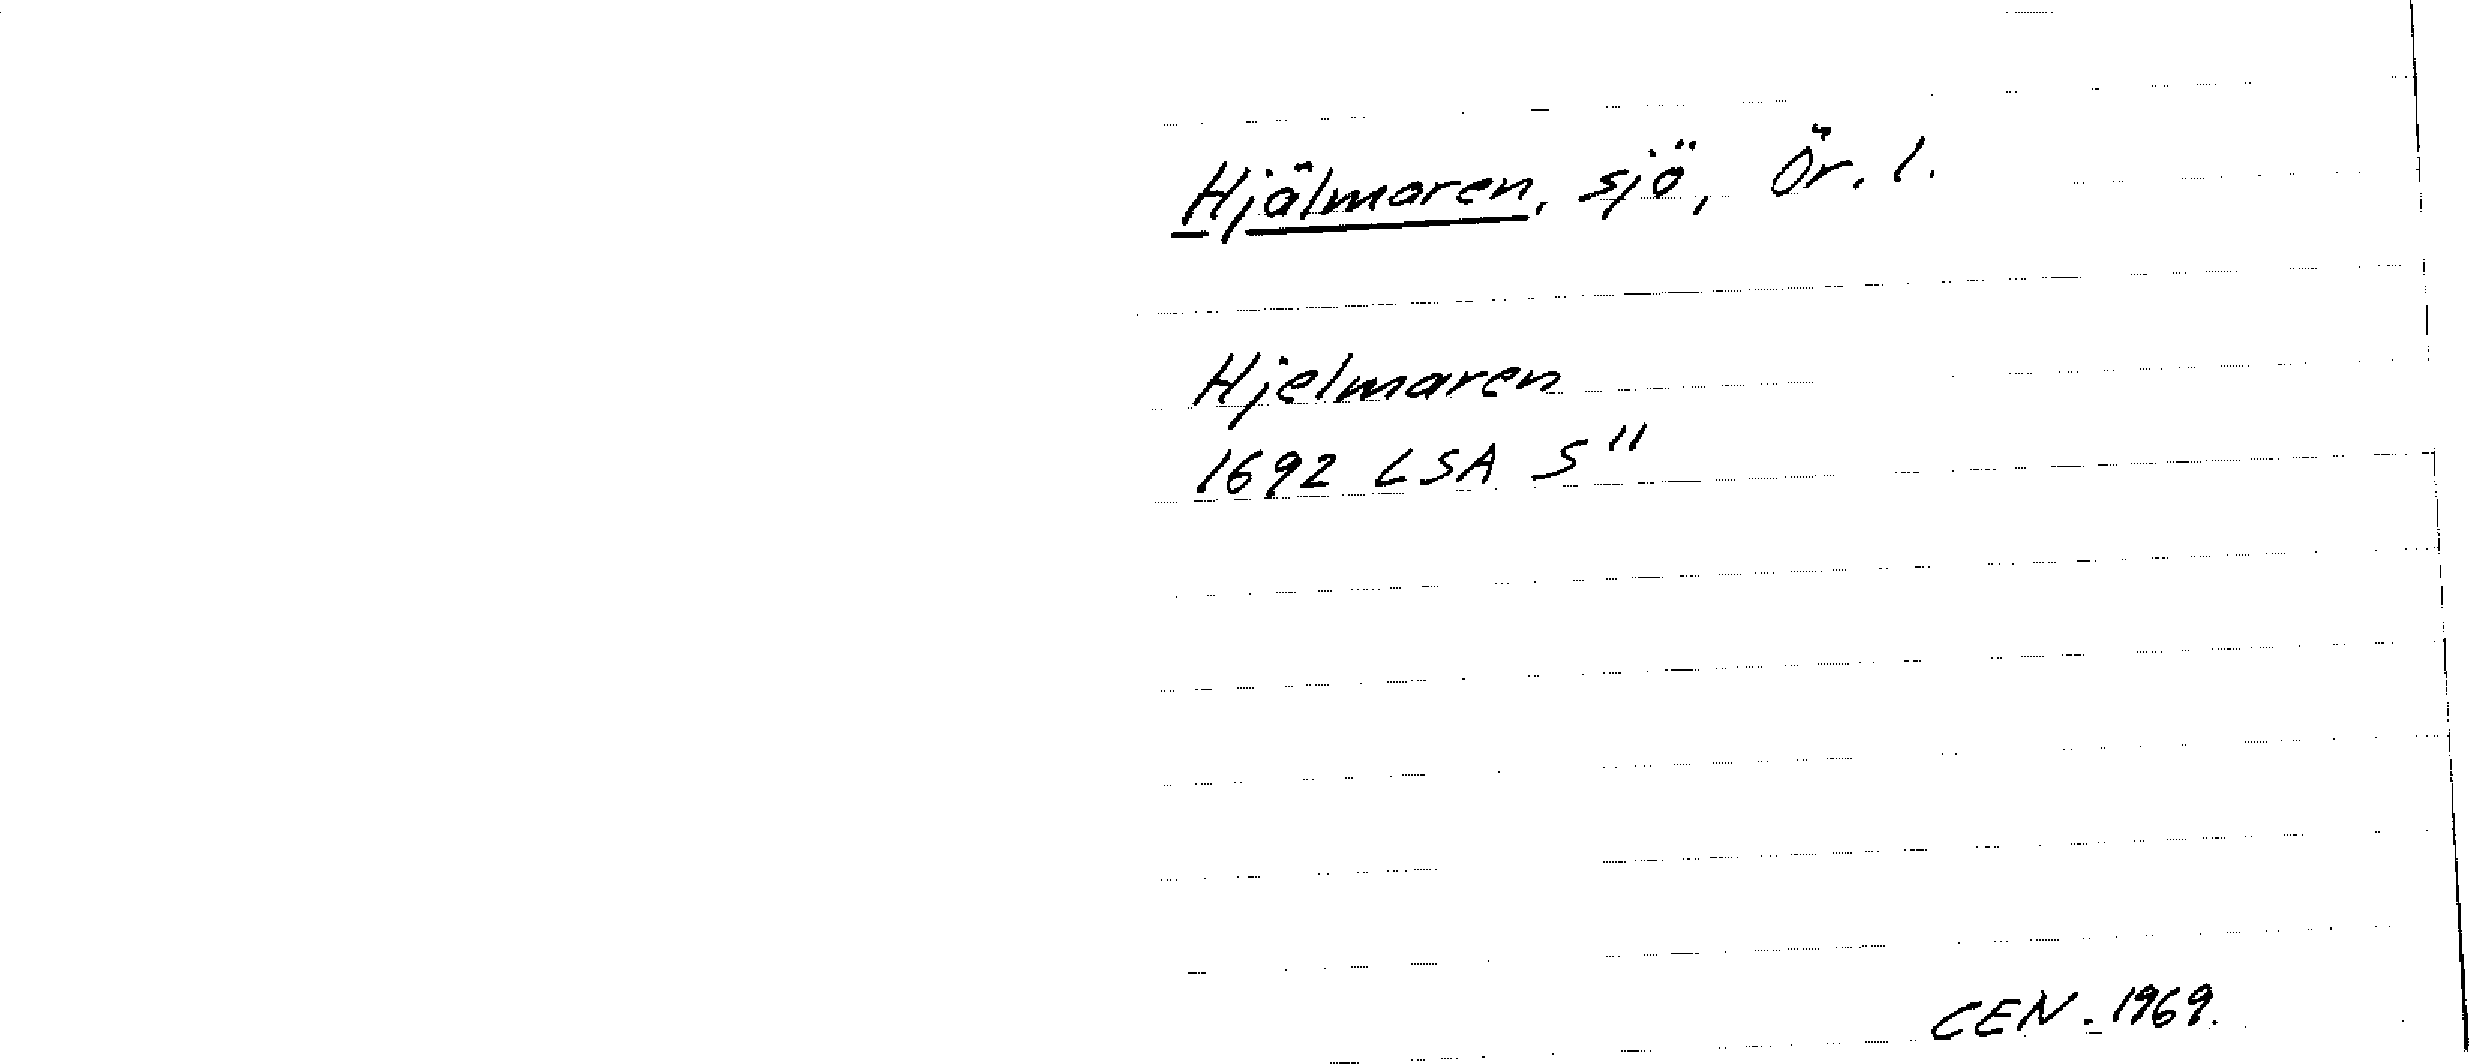 Hjälmaren, sjö, Ör. l.
Hjelmaren
1692 LSA S"
CEN. 1969.